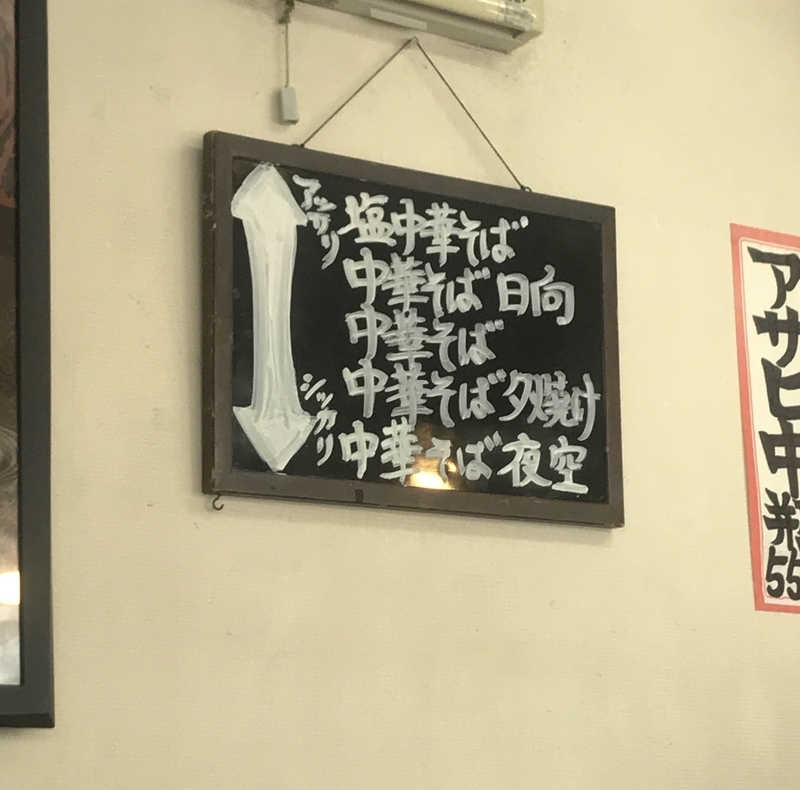 アッサリ
塩中華そば
中華そば 日向
中華そば
中華そば 夕焼け
シッカリ
中華そば 夜空
アサヒ中瓶
55